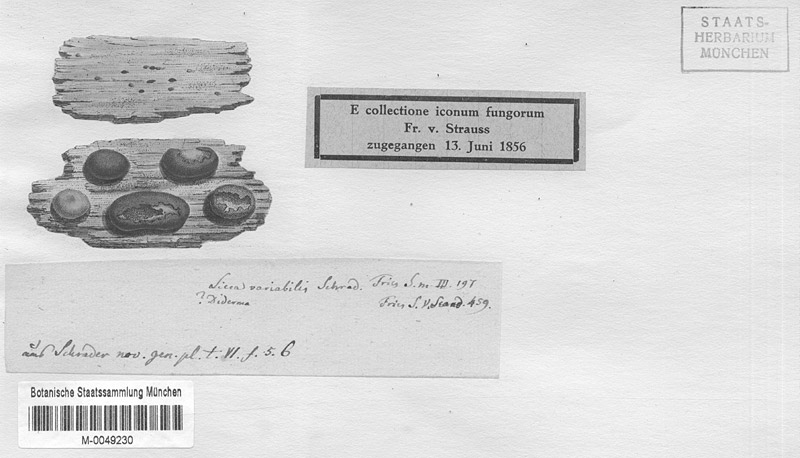 STAATS-
HERBARIUM
MÜNCHEN
E collectione iconum fungorum
Fr. v. Strauss
zugegangen 13. Juni 1856
variabilis Schrad. Fries S. m III. 197
? Diderma Fries S. V. Scand. 459.
aus Schrader nov. gen. pl. t. VI. f. 5. 6
Botanische Staatssammlung München
M-0049230